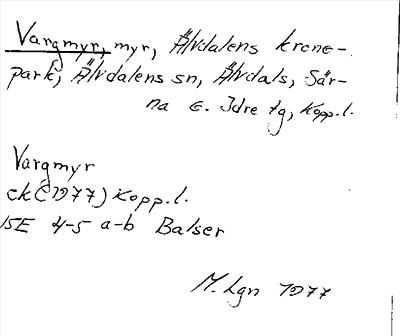 Vargmyr, myr, Älvdalens krono-
park, Älvdalens sn, Älvdals, Sär-
na o. Idre tg, Kopp.l.
Vargmyr
ek (1977) Kopp.l.
15E 4-5 a-b Balser
M. Lgn 1977